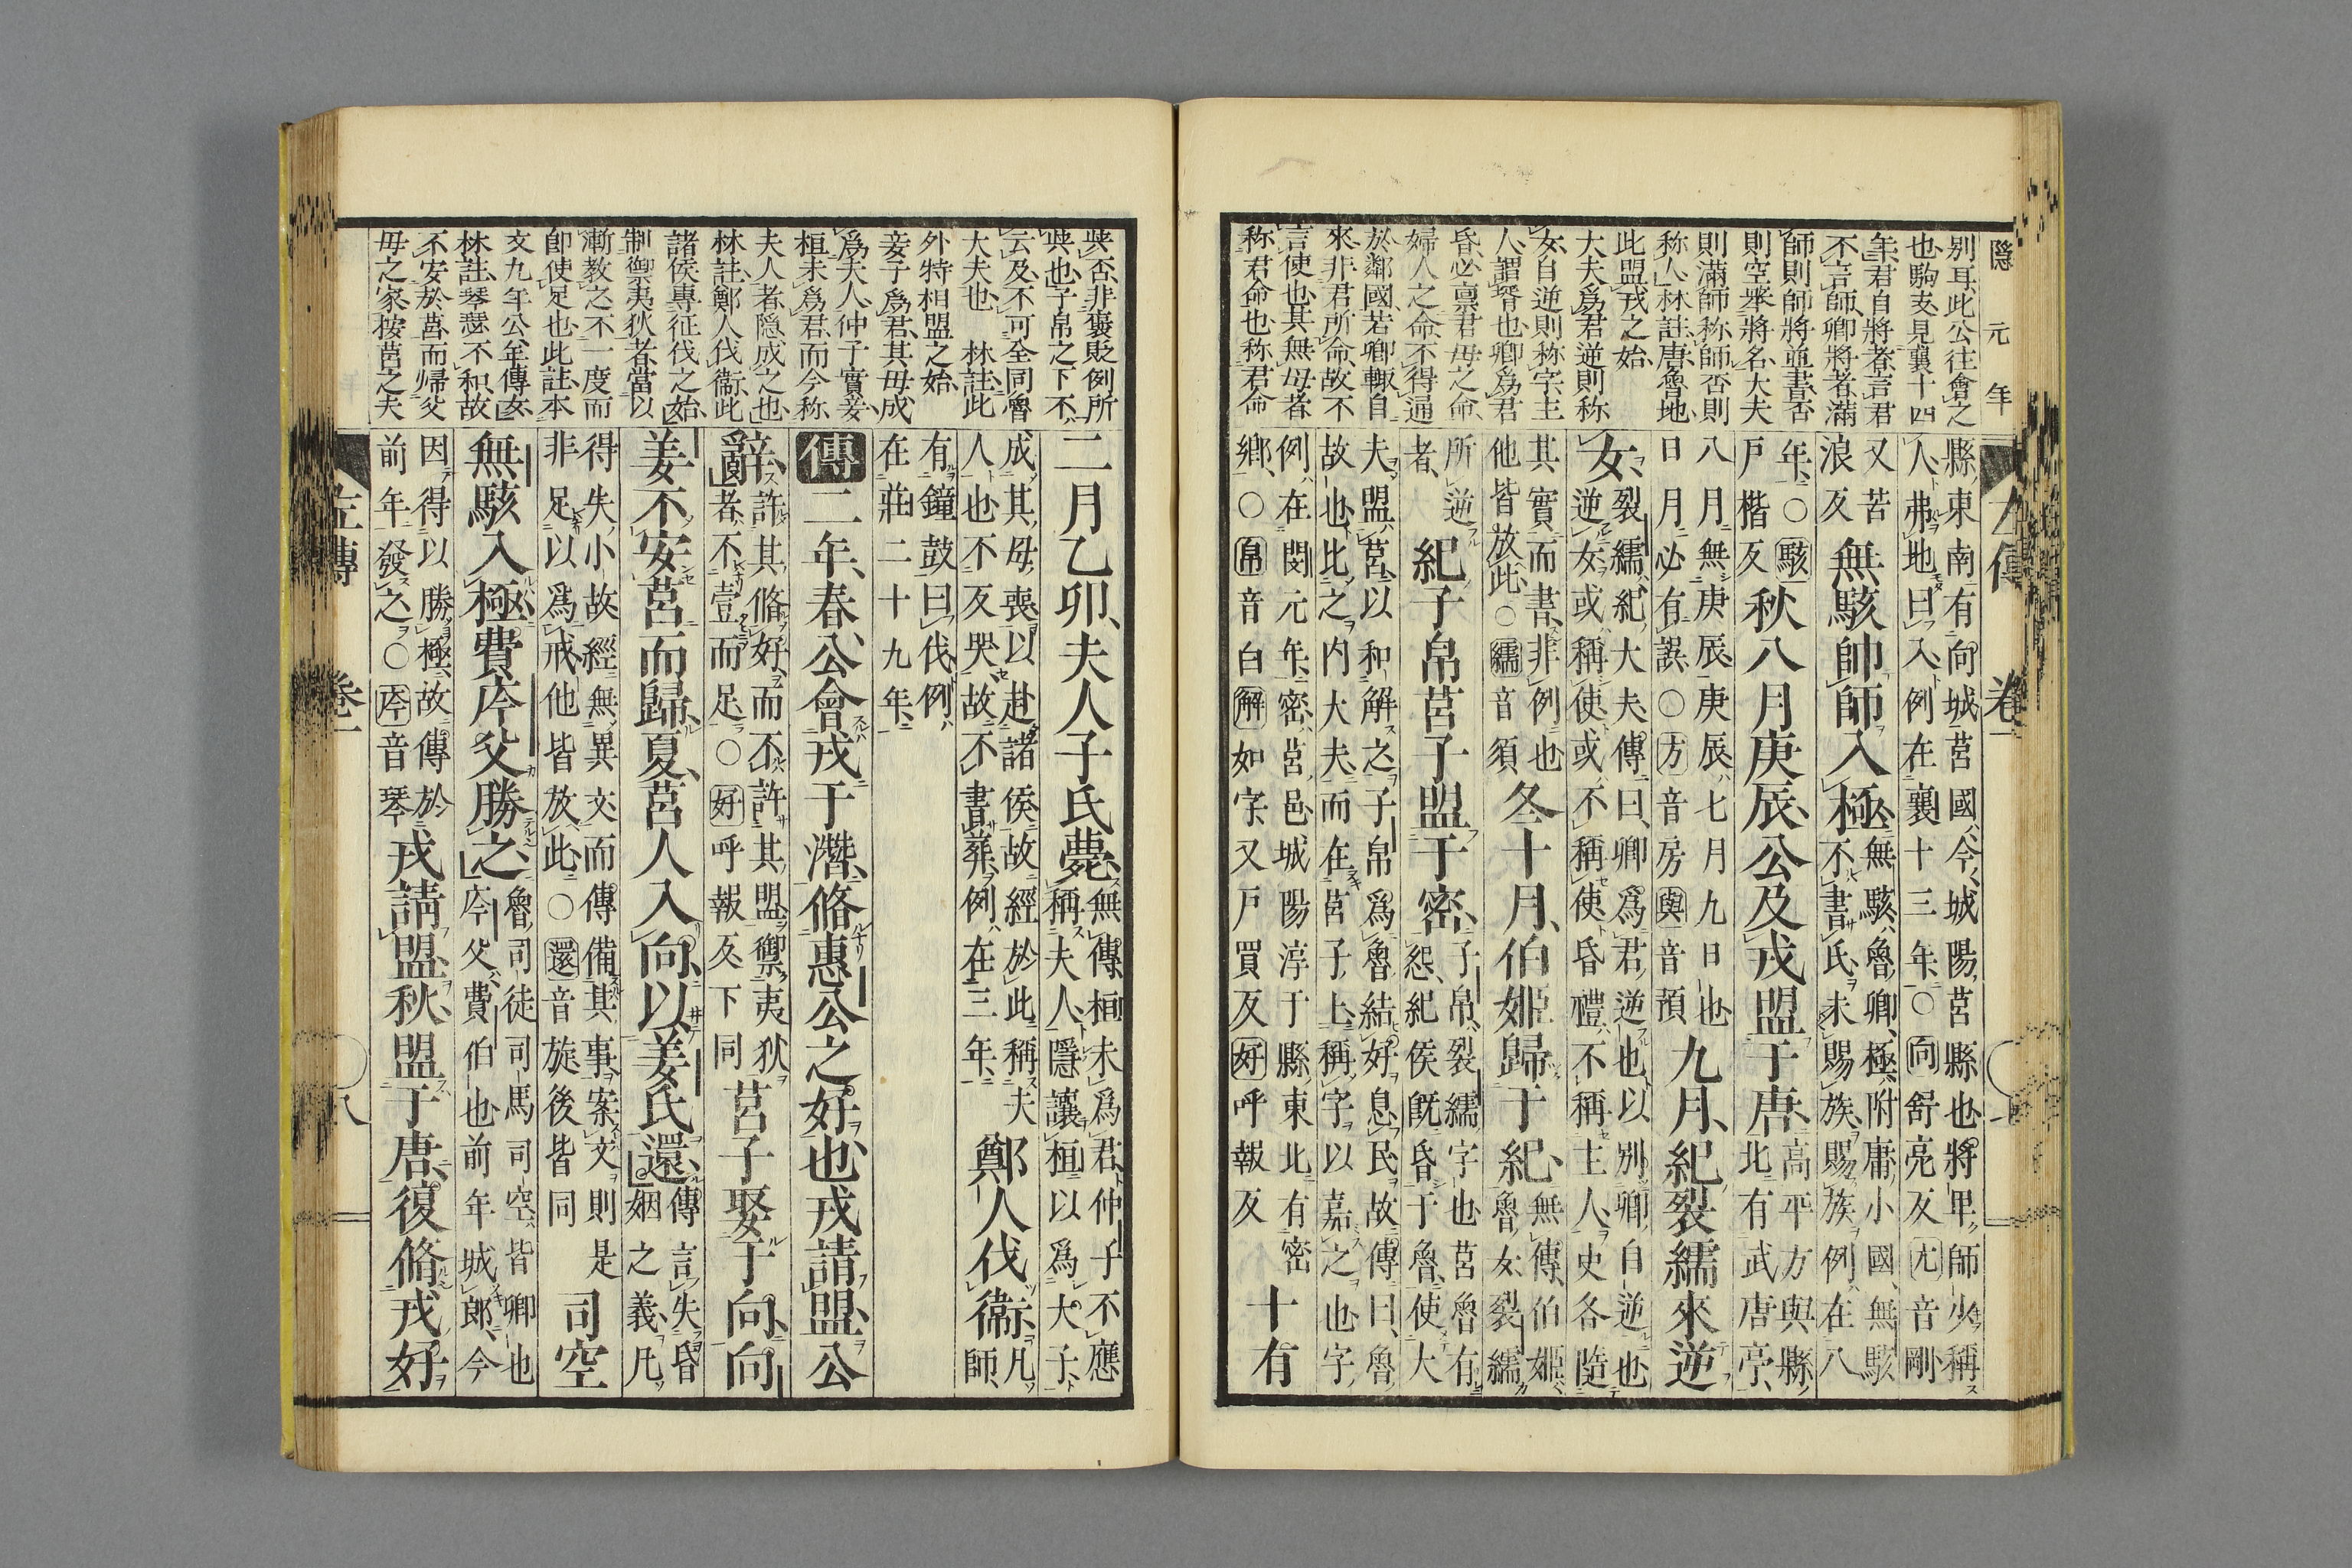 隱元年
別耳此公往會之
也駒支見襄十四
年君自將者言君
不言師卿將者滿
師則師將並書否
則空舉將名大夫
則滿師称師否則
称人林註唐魯地
此盟戎之始
大夫爲君逆則称
女自逆則称字主
人謂壻也卿爲君
昏必禀君母之命
婦人之命不得通
於鄰國若卿輙自
來非君所命故不
言使也其無母者
称君命也称君命
左傳 卷一
縣東南有向城莒國今城陽莒縣也將卑師少稱
人弗地曰入例在襄十三年○向舒亮反亢音剛
又苦浪反無駭帥師入極無駭魯卿極附庸小國無駭不書氏未賜族賜族例在八
年○駭戶楷反秋八月庚辰公及戎盟于唐高平方與縣北有武唐亭
八月無庚辰庚辰七月九日也日月必有誤○方音房與音預九月紀裂繻來逆
女裂繻紀大夫傳曰卿爲君逆也以別卿自逆也逆女或稱使或不稱使昏禮不稱主人史各隨
其實而書非例也他皆放此○繻音須冬十月伯姬歸于紀無傳伯姬魯女裂繻
所逆者紀子帛莒子盟于密子帛裂繻字也莒魯有怨紀侯既昏于魯使大
夫盟莒以和解之子帛爲魯結好息民故傳曰魯故也比之内大夫而在莒子上稱字以嘉之也字
例在閔元年密莒邑城陽淳于縣東北有密鄉○帛音白解如字又戶買反好呼報反十有
與否非褒貶例所
與也子帛之下不
云及不可全同魯
大夫也 林註此
外特相盟之始
妾子爲君其母成
爲夫人仲子實妾
桓未爲君而今称
夫人者隱成之也
林註鄭人伐衞此
諸侯專征伐之始
制禦夷狄者當以
漸教之不一度而
即使足也此註本
文九年公羊傳文
林註琴瑟不和故
不安於莒而帰父
母之家按莒之夫
二月乙卯夫人子氏薨無傳桓未爲君仲子不應稱夫人隱讓桓以爲大子
成其母喪以赴諸侯故經於此稱夫人也不反哭故不書葬例在三年鄭人伐衞凡師
有鐘鼓曰伐例在莊二十九年
傳二年春公會戎于潛脩惠公之好也戎請盟公
辭許其脩好而不許其盟禦夷狄者不壹而足○好呼報反下同莒子娶于向向
姜不安莒而歸夏莒人入向以姜氏還傳言失昏姻之義凡
得失小故經無異文而傳備其事案文則是非足以爲戒他皆放此○還音旋後皆同司空
無駭入極費庈父勝之魯司徒司馬司空皆卿也庈父費伯也前年城郎今
因得以勝極故傳於前年發之○庈音琴戎請盟秋盟于唐復脩戎好
左傳 卷一 八